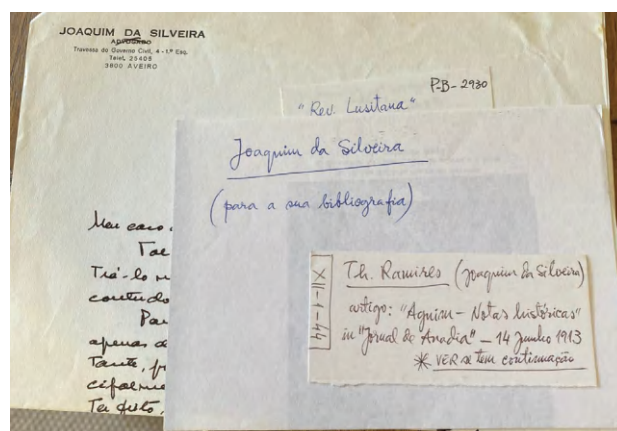 JOAQUIM DA SILVEIRA
ADVOGADO
Travessa do Governo Civil, 4 - 1.º Esq.
Telef. 25405
3800 AVEIRO
P-B-2930
"Rev. Lusitana"
Joaquim da Silveira
(para a sua bibliografia)
Meu caro
Trá-lo
contudo
apenas
XII-1-44
Th. Ramires (Joaquim da Silveira)
artigo: "Aguim - Notas históricas"
in "Jornal de Anadia" - 14 Junho 1913
* VER se tem continuação